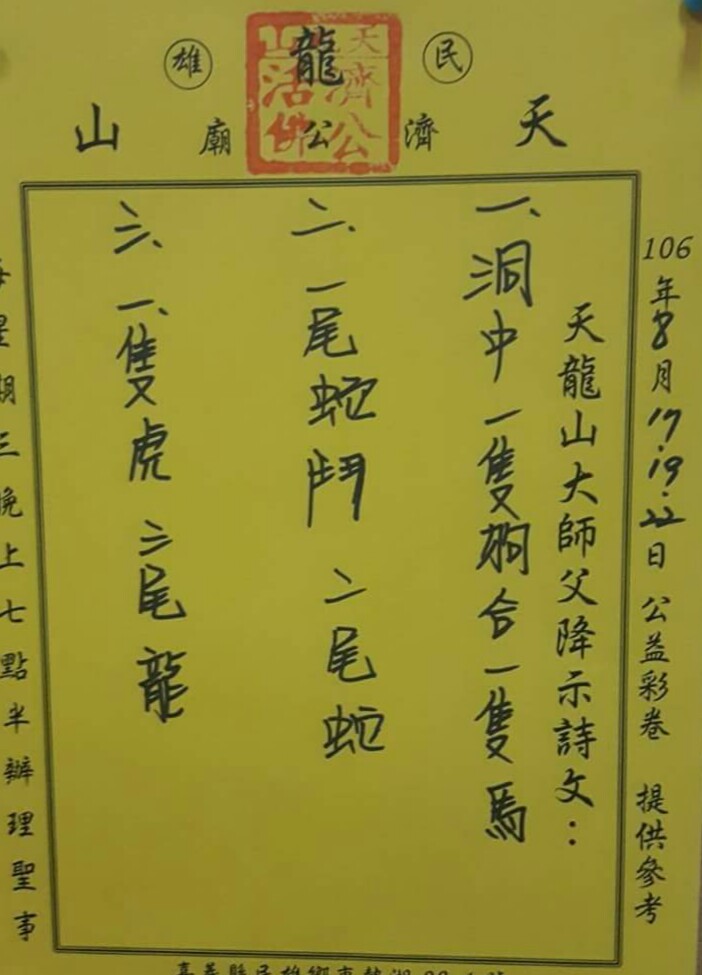 民雄
天龍山
濟公廟
天龍山濟公活佛
106年8月17.19.22日 公益彩卷 提供參考
天龍山大師父降示詩文：
一、洞中一隻狗合一隻馬
二、一尾蛇鬥二尾蛇
三、一隻虎三尾龍
每星期三晚上七點半辦理聖事
嘉義縣民雄鄉